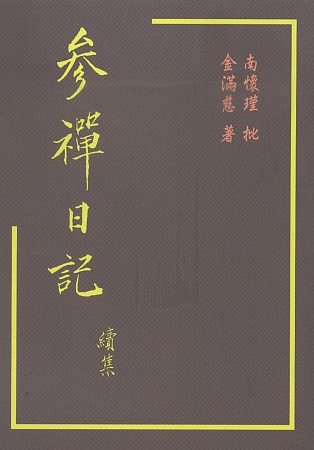 南懷瑾 批
金滿慈 著
參禪日記
續集